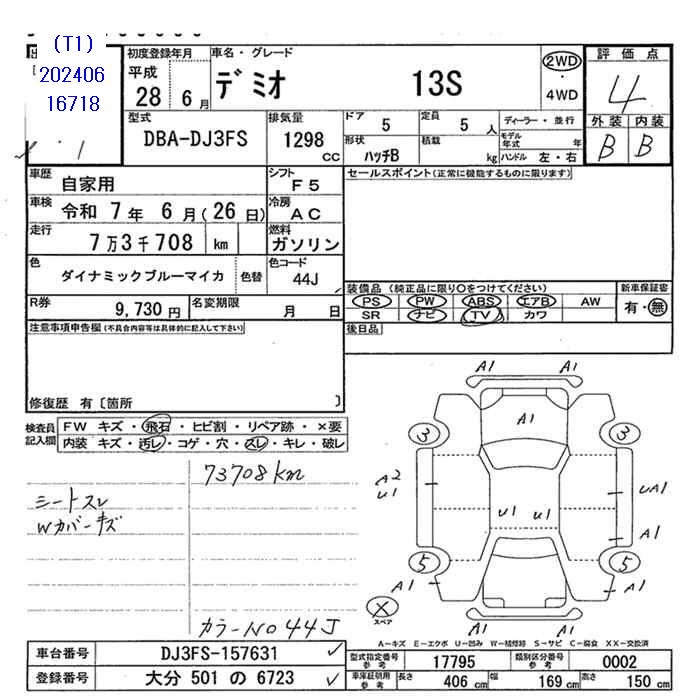 (T1)
202406
16718
初度登録年月
平成
28 6月
車名・グレード
デミオ 13S
2WD
・
4WD
評価点
4
外装 内装
B B
型式
DBA-DJ3FS
排気量
1298
CC
ドア 5
定員 5 人
ディーラー・並行
形状 ハッチB
積載 kg
モデル年式 年
ハンドル 左・右
車歴 自家用
シフト F5
車検 令和 7年 6月(26日)
冷房 AC
走行 7万3千708 km
燃料 ガソリン
色 ダイナミックブルーマイカ
色替
色コード 44J
R券 9,730円
名変期限 月 日
セールスポイント(正常に機能するものに限ります)
装備品(純正品に限り○をつけてください)
PS PW ABS エアB AW
SR ナビ TV カワ
新車保証書
有・無
後日品
注意事項申告欄(不具合内容等は具体的に記入して下さい)
修復歴 有〔箇所 〕
検査員記入欄
FW キズ・飛石・ヒビ割・リペア跡・×要
内装 キズ・汚レ・コゲ・穴・スレ・キレ・破レ
73708km
シートスレ
Wカバーキズ
カラーNO 44J
A1 A1
A1
3 3
A2
U1
UA1
U1 U1
A1
5 5
A1 A1
×
スペア
A1 A1
A-キズ E-エクボ U-凹み W-補修跡 S-サビ C-腐食 XX-交換済
車台番号 DJ3FS-157631
登録番号 大分 501 の 6723
型式指定番号 参考 17795
類別区分番号 参考 0002
車庫証明用 参考 長さ 406 cm 幅 169 cm 高さ 150 cm